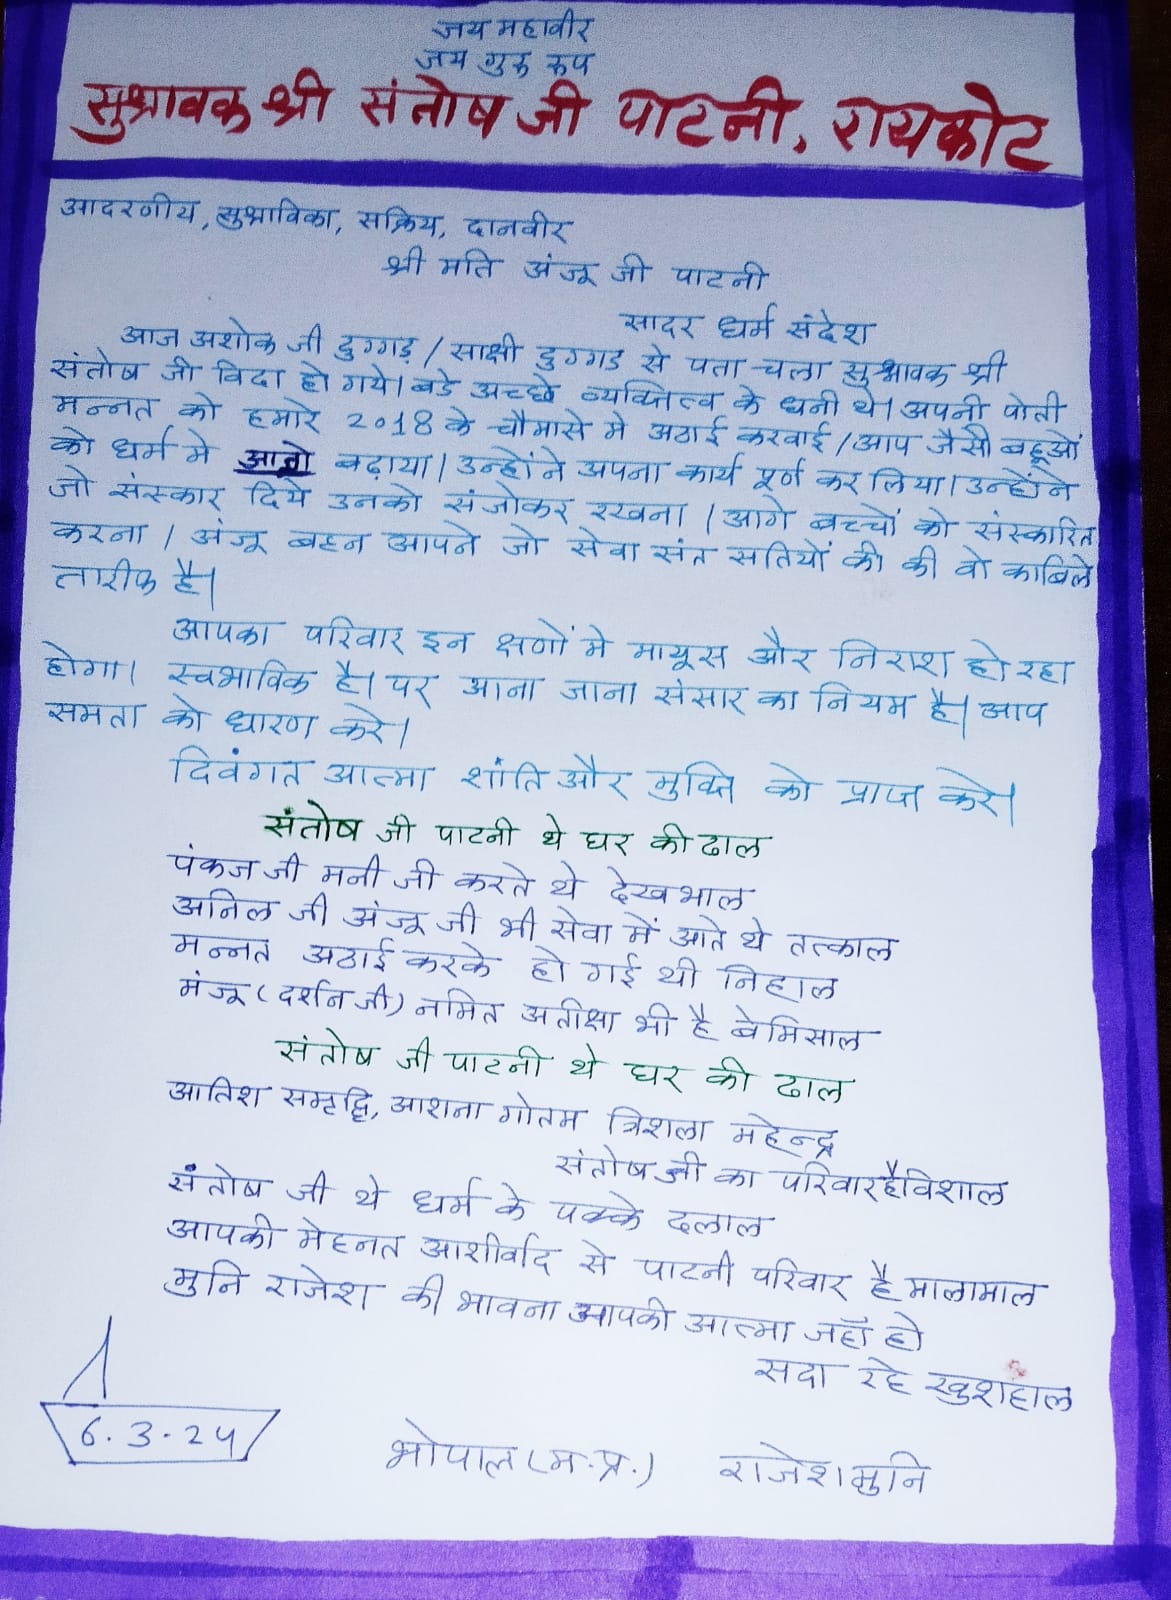 जय महावीर
जय गुरु रुप
सुश्रावक श्री संतोष जी पाटनी, रायकोट
आदरणीय, सुश्राविका, सक्रिय, दानवीर
श्री मति अंजू जी पाटनी
सादर धर्म संदेश
आज अशोक जी दुग्गड़ / साक्षी दुग्गड से पता चला सुश्रावक श्री
संतोष जी विदा हो गये। बडे अच्छे व्यक्तित्व के धनी थे। अपनी पोती
मन्नत को हमारे 2018 के चौमासे मे अठाई करवाई / आप जैसी बहूओं
को धर्म मे बढ़ाया। उन्होंने अपना कार्य पूर्ण कर लिया। उन्होंने
जो संस्कार दिये उनको संजोकर रखना। आगे बच्चों को संस्कारित
करना। अंजू बहन आपने जो सेवा संत सतियों की की वो काबिले
तारीफ है।
आपका परिवार इन क्षणों मे मायूस और निराश हो रहा
होगा। स्वभाविक है। पर आना जाना संसार का नियम है। आप
समता को धारण करे।
दिवंगत आत्मा शांति और मुक्ति को प्राप्त करे।
संतोष जी पाटनी थे घर की ढाल
पंकज जी मनी जी करते थे देखभाल
अनिल जी अंजू जी भी सेवा में आते थे तत्काल
मन्नत अठाई करके हो गई थी निहाल
मंजू (दर्शन जी) नमित अतीक्षा भी है बेमिसाल
संतोष जी पाटनी थे घर की ढाल
आतिश समृद्धि, आशना गोतम त्रिशला महेन्द्र
संतोष जी का परिवार है विशाल
संतोष जी थे धर्म के पक्के दलाल
आपकी मेहनत आशीर्वाद से पाटनी परिवार है मालामाल
मुनि राजेश की भावना आपकी आत्मा जहाँ हो
सदा रहे खुशहाल
6.3.24
भोपाल (म.प्र.) राजेश मुनि